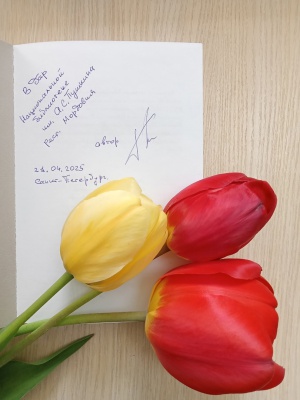 В дар
Национальной
библиотеке
им. А.С. Пушкина
Респ. Мордовия
автор
21.04.2025
Санкт-Петербург